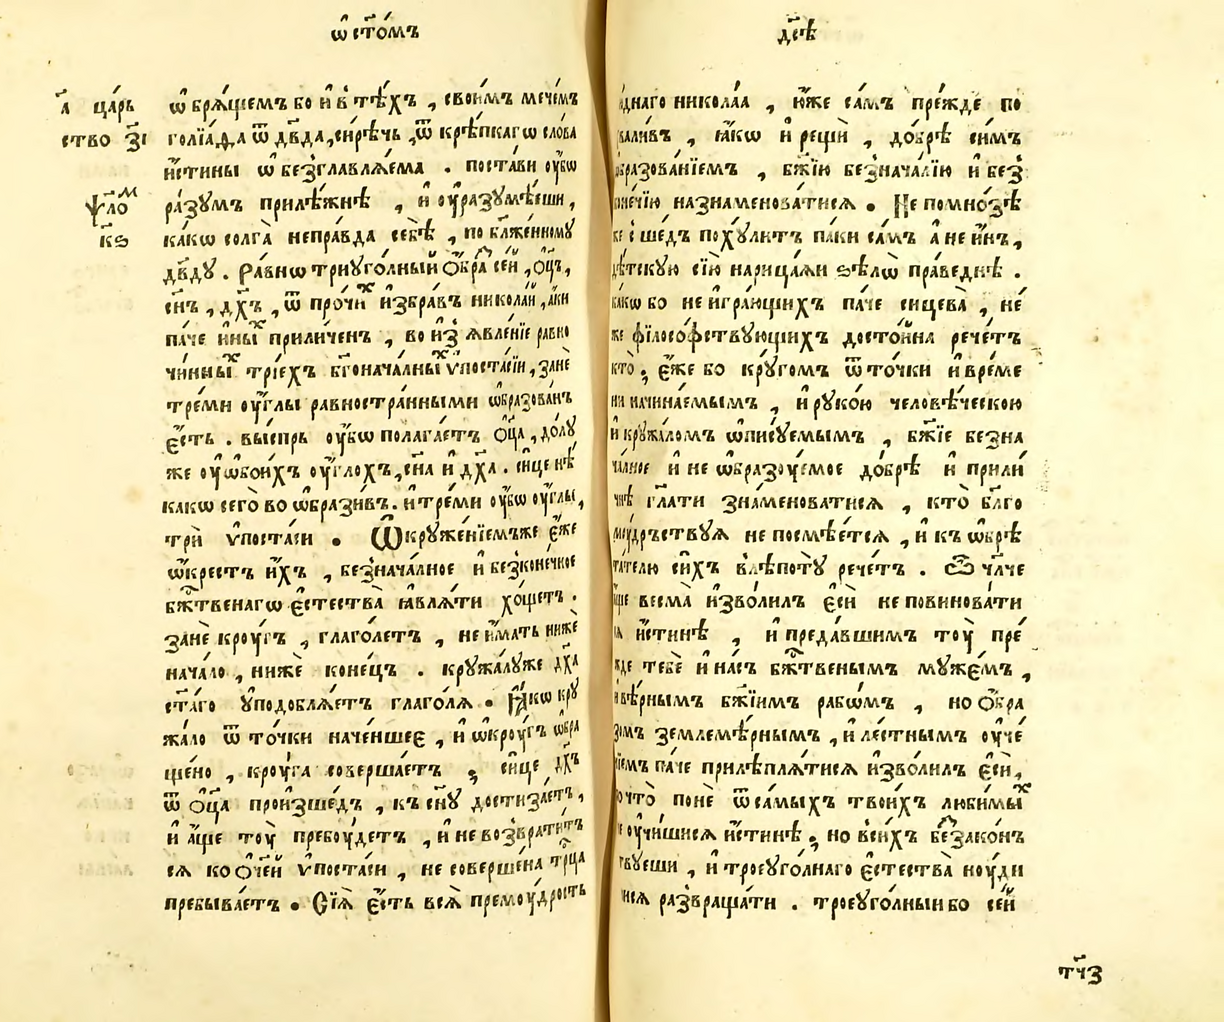 ѡ҆ ст҃о́мъ
а҃ ца́рь
ство з҃і
ѱало́м
к҃ѕ
ѡ҆брѧ́щемъ бо и҆ в тѣ́хъ , свои́мъ мече́мъ
голїа́ѳа ѿ дв҃да , си́рѣчь , ѿ крѣ́пкагѡ сло́ва
и҆́стины ѡ҆безглавлѧ́ема . поста́ви ᲂу҆́бѡ
ра́зумъ прилѣ́жнѣ , и҆ ᲂу҆разумѣ́еши ,
ка́кѡ солга̀ непра́вда себѣ̀ , по бл҃же́нному
дв҃ду . Ра́внѡ триуго́лный ѻ҆́бра сей , ѻ҆ц҃ъ ,
сн҃ъ , дх҃ъ , ѿ про́чих и҆збра́въ никола́й , а҆́ки
па́че и҆ны́х прили́ченъ , во и҆з̾ѧвле́нїе равно
чи́нных трїе́хъ бг҃онача́лных ѵ҆поста́сїй , занѐ
тремѝ ᲂу҆́глы равностра́нными ѡ҆бразо́ванъ
є҆́сть . вы́спрь ᲂу҆́бѡ полага́етъ ѻ҆ц҃а̀ , до́лу
же ᲂу҆ ѡ҆бои́хъ ᲂу҆́глохъ , сн҃а и҆ дх҃а . си́це нѣ́
какѡ сего̀ во ѡ҆брази́въ . и҆ тре́ми ᲂу҆́бѡ ᲂу҆́глы ,
трѝ ѵ҆поста́си . Ѡ҆круже́нїемъже є҆́же
ѡ҆́крестъ и҆́хъ , безнача́лное и҆ безконе́чное
бж҃твенагѡ є҆стества̀ ꙗ҆влѧ́ти хо́щетъ .
занѐ кро́угъ , глаго́летъ , не и҆́мать нижѐ
нача́ло , нижѐ коне́цъ . кружа́луже дх҃а
ст҃а́го ᲂу҆подоблѧ́етъ глаго́лѧ . Ꙗ҆́кѡ кру
жа́ло ѿ то́чки наче́ншее , и҆ ѡ҆кро́угъ ѡ҆бра
ще́но , кро́уга соверша́етъ ; си́це дх҃ъ
ѿ ѻ҆ц҃а̀ произше́дъ , къ сн҃у дости́заетъ ,
и҆ а҆́ще тоу̀ пребоу́детъ , и҆ не возврати́тъ
сѧ ко ѻ҆́ч҃ей ѵ҆поста́си , не соверше́на тр҃ца
пребыва́етъ . Сїѧ̀ є҆́сть всѧ̀ премоу́дрость
дс҃ѣ
днаго никола́а , ю҆́же са́мъ пре́жде по
вали́въ , ꙗ҆́кѡ и҆ рещѝ , до́брѣ си́мъ
бразова́нїемъ , бж҃їю безнача́лїю и҆ без̾
коне́чїю назнаменова́тисѧ . Не помно́зѣ
же сше́дъ поху́литъ па́ки са́мъ а҆ не и҆́нъ ,
дѣ́тскую сїю̀ нарица́ѧи ѕѣлѡ̀ пра́веднѣ .
ка́кѡ бо не и҆гра́ющихъ па́че сицева̀ , не́
же філосо́фствующихъ досто́йна рече́тъ
кто̀ ; є҆́же бо кру́гомъ ѿ то́чки и҆ вре́ме
ни начина́емымъ , и҆ руко́ю человѣ́ческою
и҆ кружа́ломъ ѡ҆писуемымъ , бж҃їе безна
ча́лное и҆ не ѡ҆бразо́уемое до́брѣ и҆ прили́
чнѣ гл҃ати зна́меноватисѧ , кто̀ бл҃го
моу́дръствуѧ не посмѣе́тсѧ , и҆ къ ѡ҆брѣ
тателю си́хъ влѣ́поту рече́тъ . Ѽ чл҃че
а҆́ще весма̀ и҆зво́лилъ є҆сѝ не повинова́ти
сѧ и҆́стинѣ , и҆ преда́вшимъ тоу̀ пре́
жде тебѐ и҆ на́съ бж҃твенымъ муже́мъ ,
и҆ вѣ́рнымъ бж҃їимъ рабѡ́мъ , но ѻ҆́бра
зомъ землемѣ́рнымъ , и҆ ле́стнымъ ᲂу҆че́
нїемъ па́че прилѣплѧ́тисѧ и҆зво́лилъ є҆сѝ ,
по что̀ понѐ ѿ са́мыхъ твои́хъ люби́мых
не ᲂу҆чи́шисѧ и҆́стинѣ ; но в си́хъ беззако́нъ
твуеши , и҆ троеуго́лнаго є҆стества̀ ноу́ди
шисѧ развраща́ти . троеуго́лныи бо се́й
тч҃з